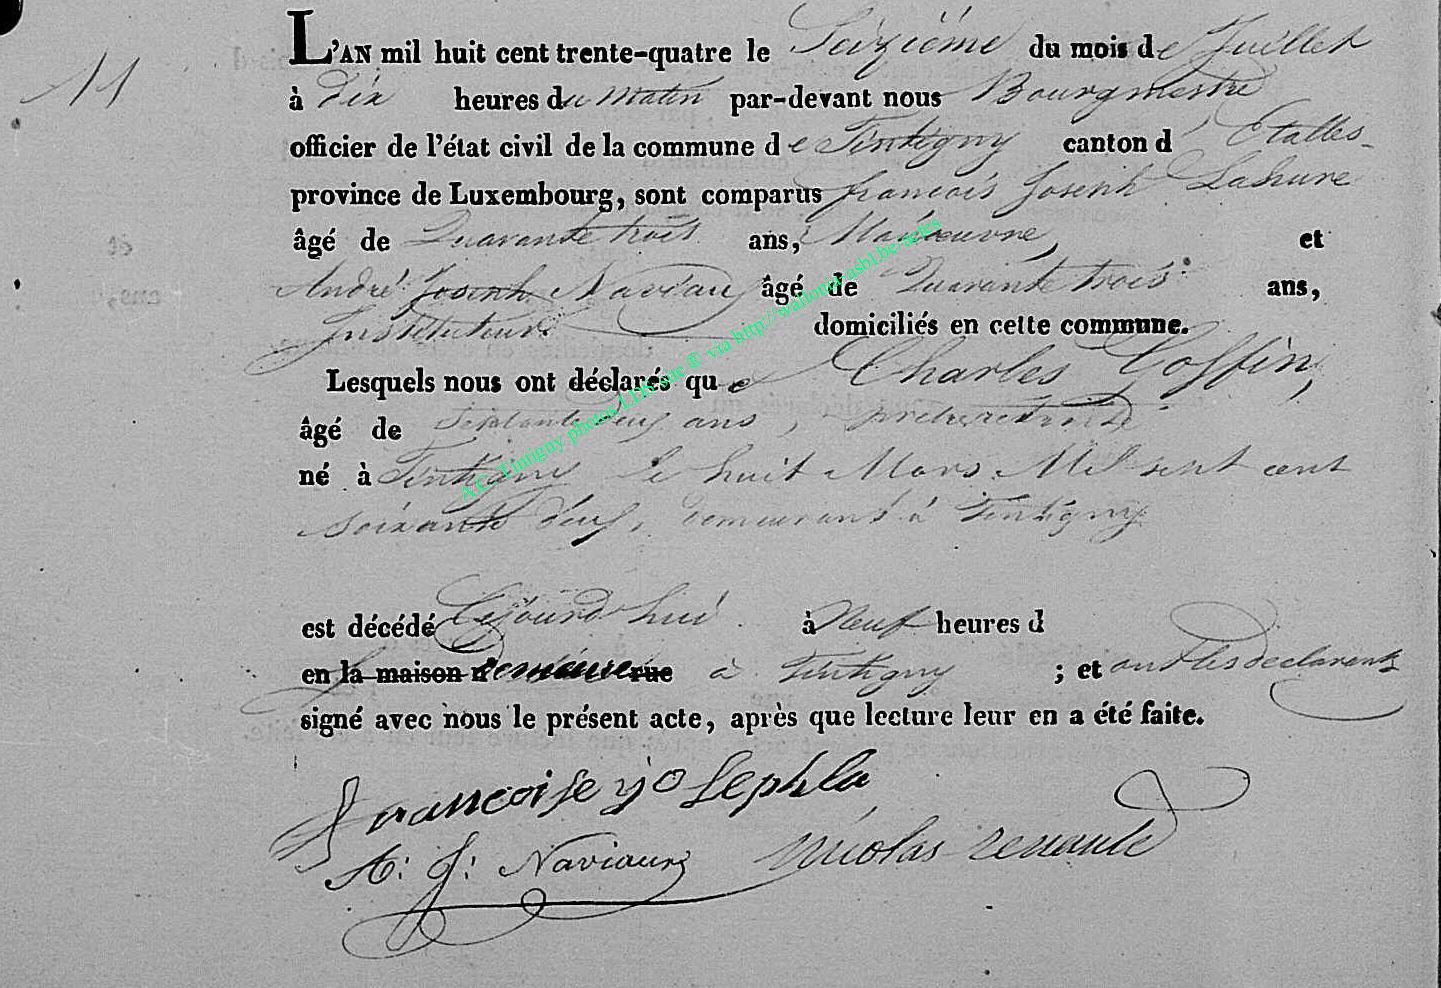 11
L'AN mil huit cent trente-quatre le Seizième du mois de Juillet
à dix heures du Matin par-devant nous Bourgmestre
officier de l'état civil de la commune de Tintigny canton d'Etalles
province de Luxembourg, sont comparus francois Joseph Lahure
âgé de Quarante trois ans, Manoeuvre, et
André Joseph Naviaux âgé de Quarante trois ans,
Instituteur. domiciliés en cette commune.
Lesquels nous ont déclarés que Charles Coffin,
âgé de Septante deux ans,
né à Tintigny le huit Mars Mil sept cent
soixante deux, demeurant à Tintigny
est décédé Cejourd'hui à Neuf heures d
en la maison n demeure rue à Tintigny ; et ont les declarants
signé avec nous le présent acte, après que lecture leur en a été faite.
francoise yosephla
A: J: Naviaux nicolas renauld
A.C. Tintigny photos LDS site ® via http://wallonia-asbl.be/actes